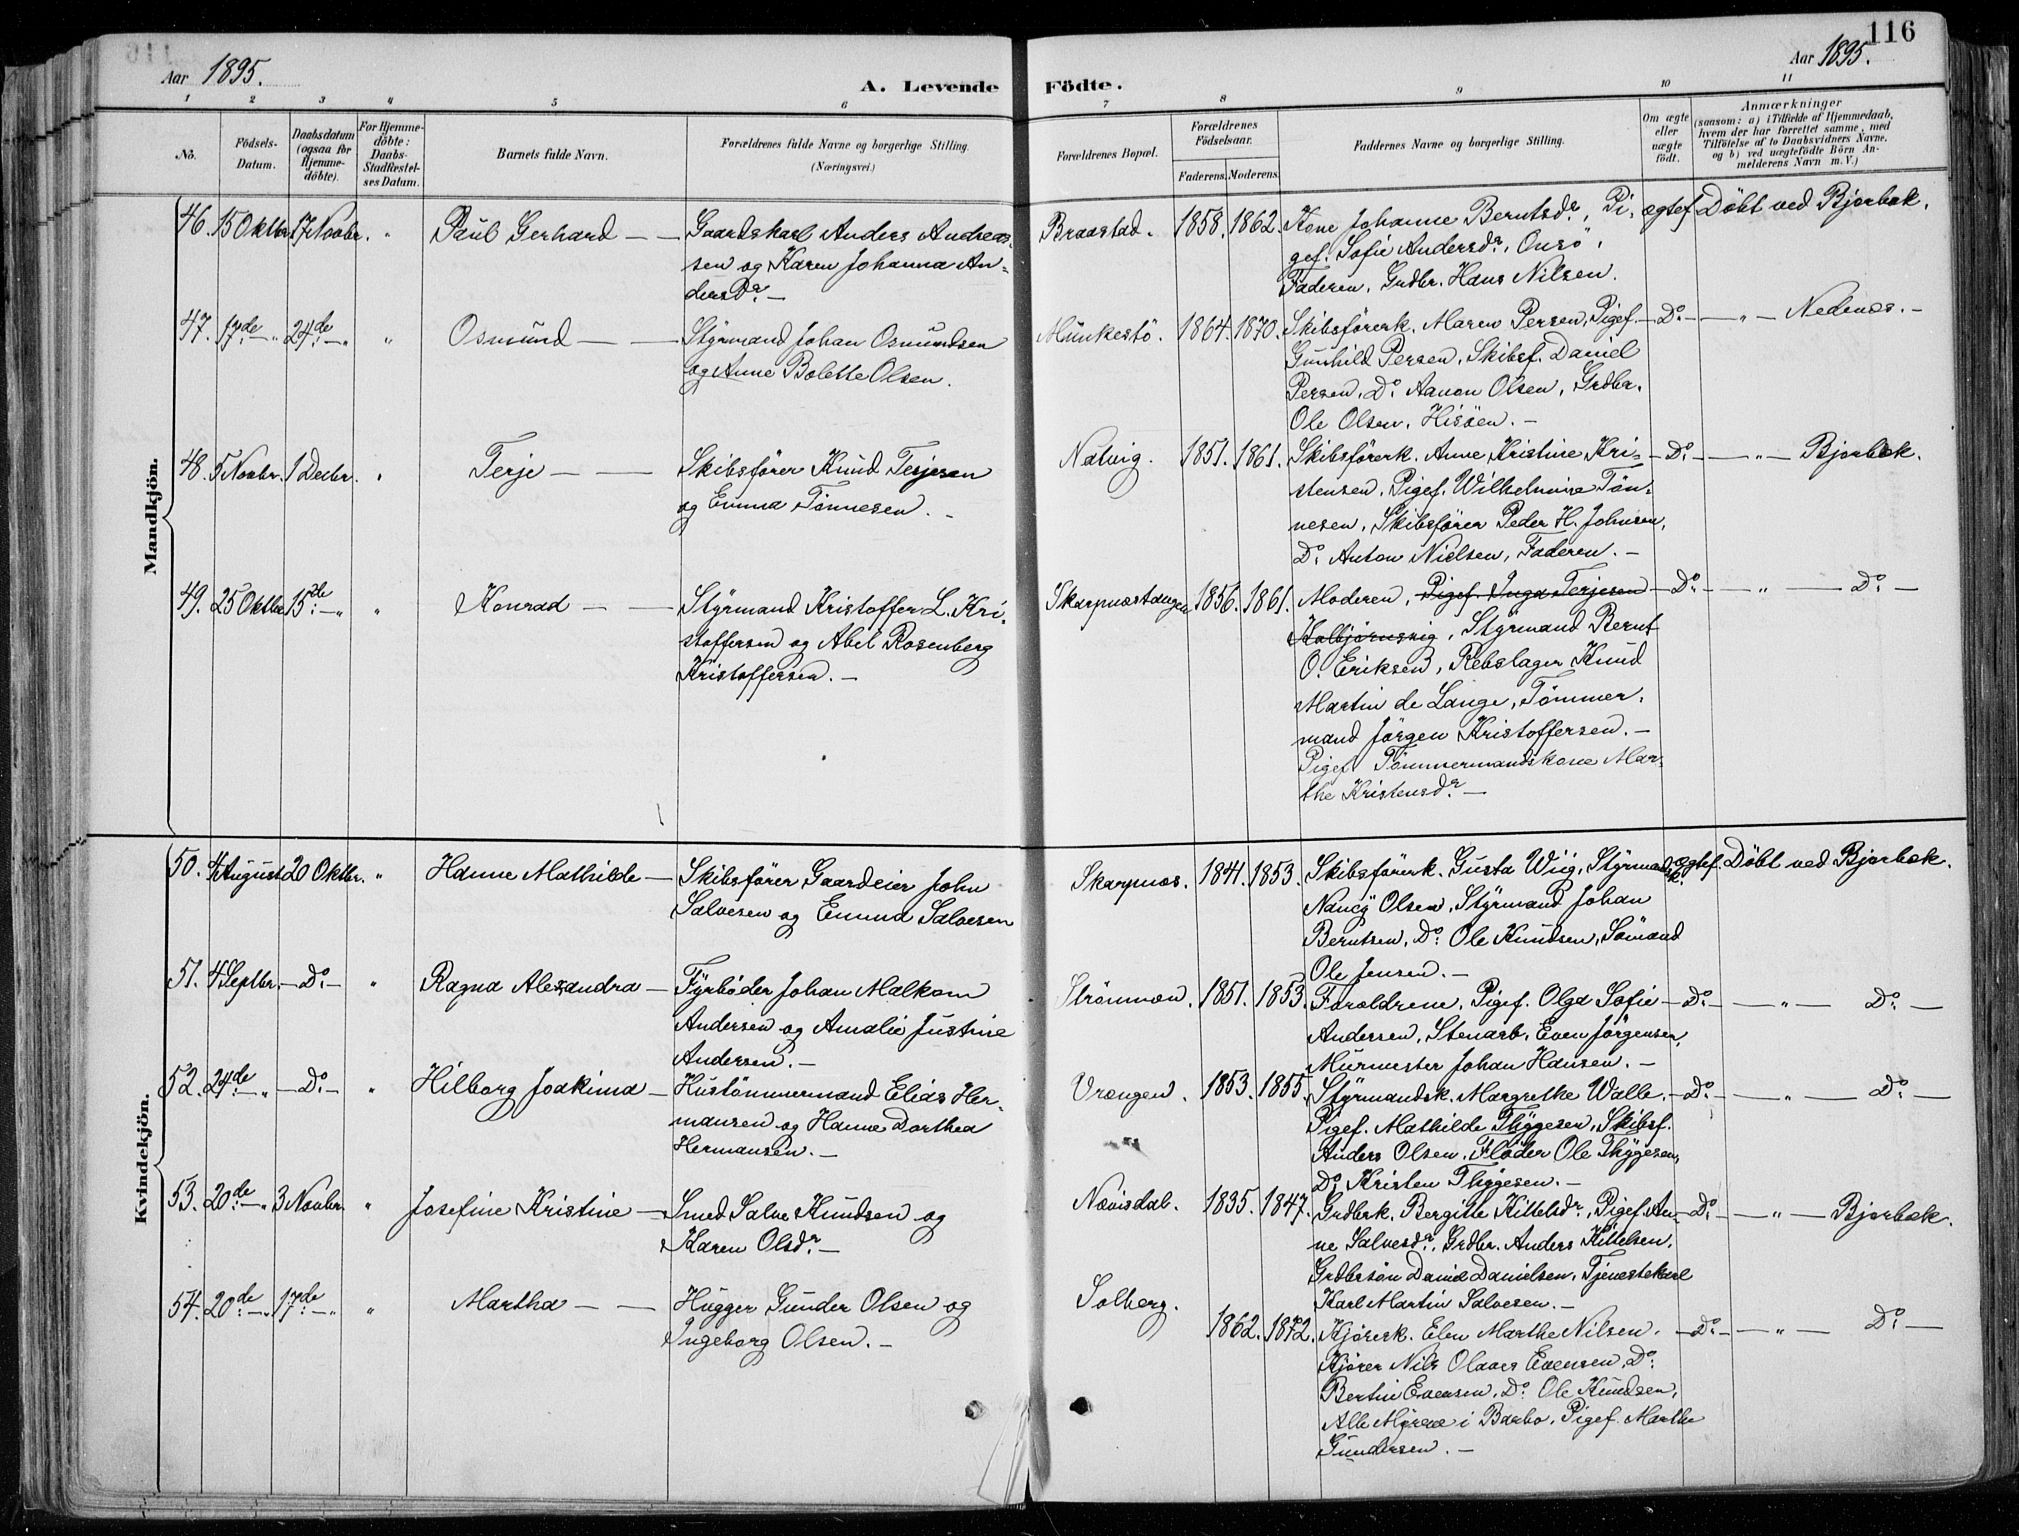 116
Aar 1895.
A. Levende Födte.
Aar 1895.
1 2 3 4 5 6 7 8 9 10 11
No.
Födsels-Datum.
Daabsdatum (ogsaa för Hjemme-döbte).
For Hjemme-döbte: Daabs-Stadfæstel-ses Datum.
Barnets fulde Navn.
Forældrenes fulde Navne og borgerlige Stilling.
(Næringsvei.)
Forældrenes Bopæl.
Forældrenes Födselsaar.
Faderens. Moderens.
Faddernes Navne og borgerlige Stilling.
Om ægte eller uægte födt.
Anmærkninger
(saasom: a) i Tilfælde af Hjemmedaab,
hvem der har forrettet samme, med
Tilföielse af to Daabsvidners Navne,
og b) ved uægtefödte Börn An-
melderens Navn m. V.)
Mandkjön.
46. 15 Oktbr. 17 Novbr. " Paul Gerhard — — Gaardskarl Anders Andreas-
sen og Karen Johanna An-
dersdr. —
Braastad. 1858. 1862. Kone Johanne Berntsdr, Pi-
gef. Sofie Andersdr, Onsö,
Faderen, Grdbr. Hans Nilsen.
ægtef. Döbt ved Bjorbæk.
47. 17de — " 24de — " " Osmund — — Styrmand Johan Osmundsen
og Anne Bolette Olsen.
Munkestö. 1864. 1870. Skibsförerk. Maren Persen, Pigef.
Gunhild Persen, Skibsf. Daniel
Persen, Do Aanon Olsen, Grdbr.
Ole Olsen, Hisöen. —
— Do — — " — Nedenæs. —
48. 5 Novbr. 1 Decbr. " Terje — — Skibsförer Knud Terjesen
og Emma Tönnesen. —
Natvig. 1851. 1861. Skibsförerk. Anne Kristine Kri-
stensen, Pigef. Wilhelmine Tön-
nesen, Skibsförer Peder H. Johnsen,
Do Anton Nielsen, Faderen. —
— Do — — " — Bjorbæk.
49. 25 Oktbr. 15de — " " Konrad — — Styrmand Kristoffer L. Kri-
stoffersen og Abel Rosenberg
Kristoffersen. —
Skarpnæstangen 1856. 1861. Moderen, Pigef. Inga Terjesen
Kolbjörnsvig, Styrmand Bernt
O. Eriksen, Rebslager Knud
Martin de Lange, Tömmer-
mand Jörgen Kristoffersen. —
Pigef Tömmermandskone Mar-
the Kristensdr —
— Do — — " — Do —
Kvindekjön.
50. 4 August 20 Oktbr. " Hanne Mathilde — Skibsförer Gaardeier John
Salvesen og Emma Salvesen
Skarpnæs. 1841. 1853. Skibsförerk. Gusta Wiig, Styrmandsk.
Nancy Olsen, Styrmand Johan
Berntsen, Do Ole Knudsen, Sömand
Ole Jensen. —
ægtef. Döbt ved Bjorbæk.
51. 4 Septbr. — Do — " Ragna Alexandra — Fyrböder Johan Malkom
Andersen og Amalie Justine
Andersen. —
Strömmen. 1851. 1853. Forældrene, Pigef. Olga Sofie
Andersen, Stenarb. Even Jörgensen,
Murmester Johan Hansen. —
— Do — — " — Do —
52. 24de — " — Do — " Hilborg Joakima — Hustömmermand Elias Her-
mansen og Hanne Dorthea
Hermansen. —
Vrengen. 1853. 1855. Styrmandsk. Margrethe Walle,
Pigef. Mathilde Thygesen, Skibsf.
Anders Olsen, Flöder Ole Thygesen,
Do Kristen Thygesen. —
— Do — — " — Do —
53. 20de — " 3 Novbr. " Josefine Kristine — Smed Salve Knudsen og
Karen Olsdr. —
Nævisdal. 1835. 1847. Grdbrk. Bergitte Kittelsdr, Pigef. An-
ne Salvesdr, Grdbr. Anders Kittelsen,
Grdbrsön Daniel Danielsen, Tjenestekarl
Karl Martin Salvesen. —
— Do — — " — Bjorbæk.
54. 20de — " 17de — " " Martha — — Hugger Gunder Olsen og
Ingeborg Olsen. —
Solberg. 1862. 1872. Kjörerk. Elen Marthe Nilsen,
Kjörer Nils Olaves Evensen, Do
Bertin Evensen, Do Ole Knudsen,
Alle Myrene i Barbo, Pigef. Marthe
Gundersen. —
— Do — — " — Do —